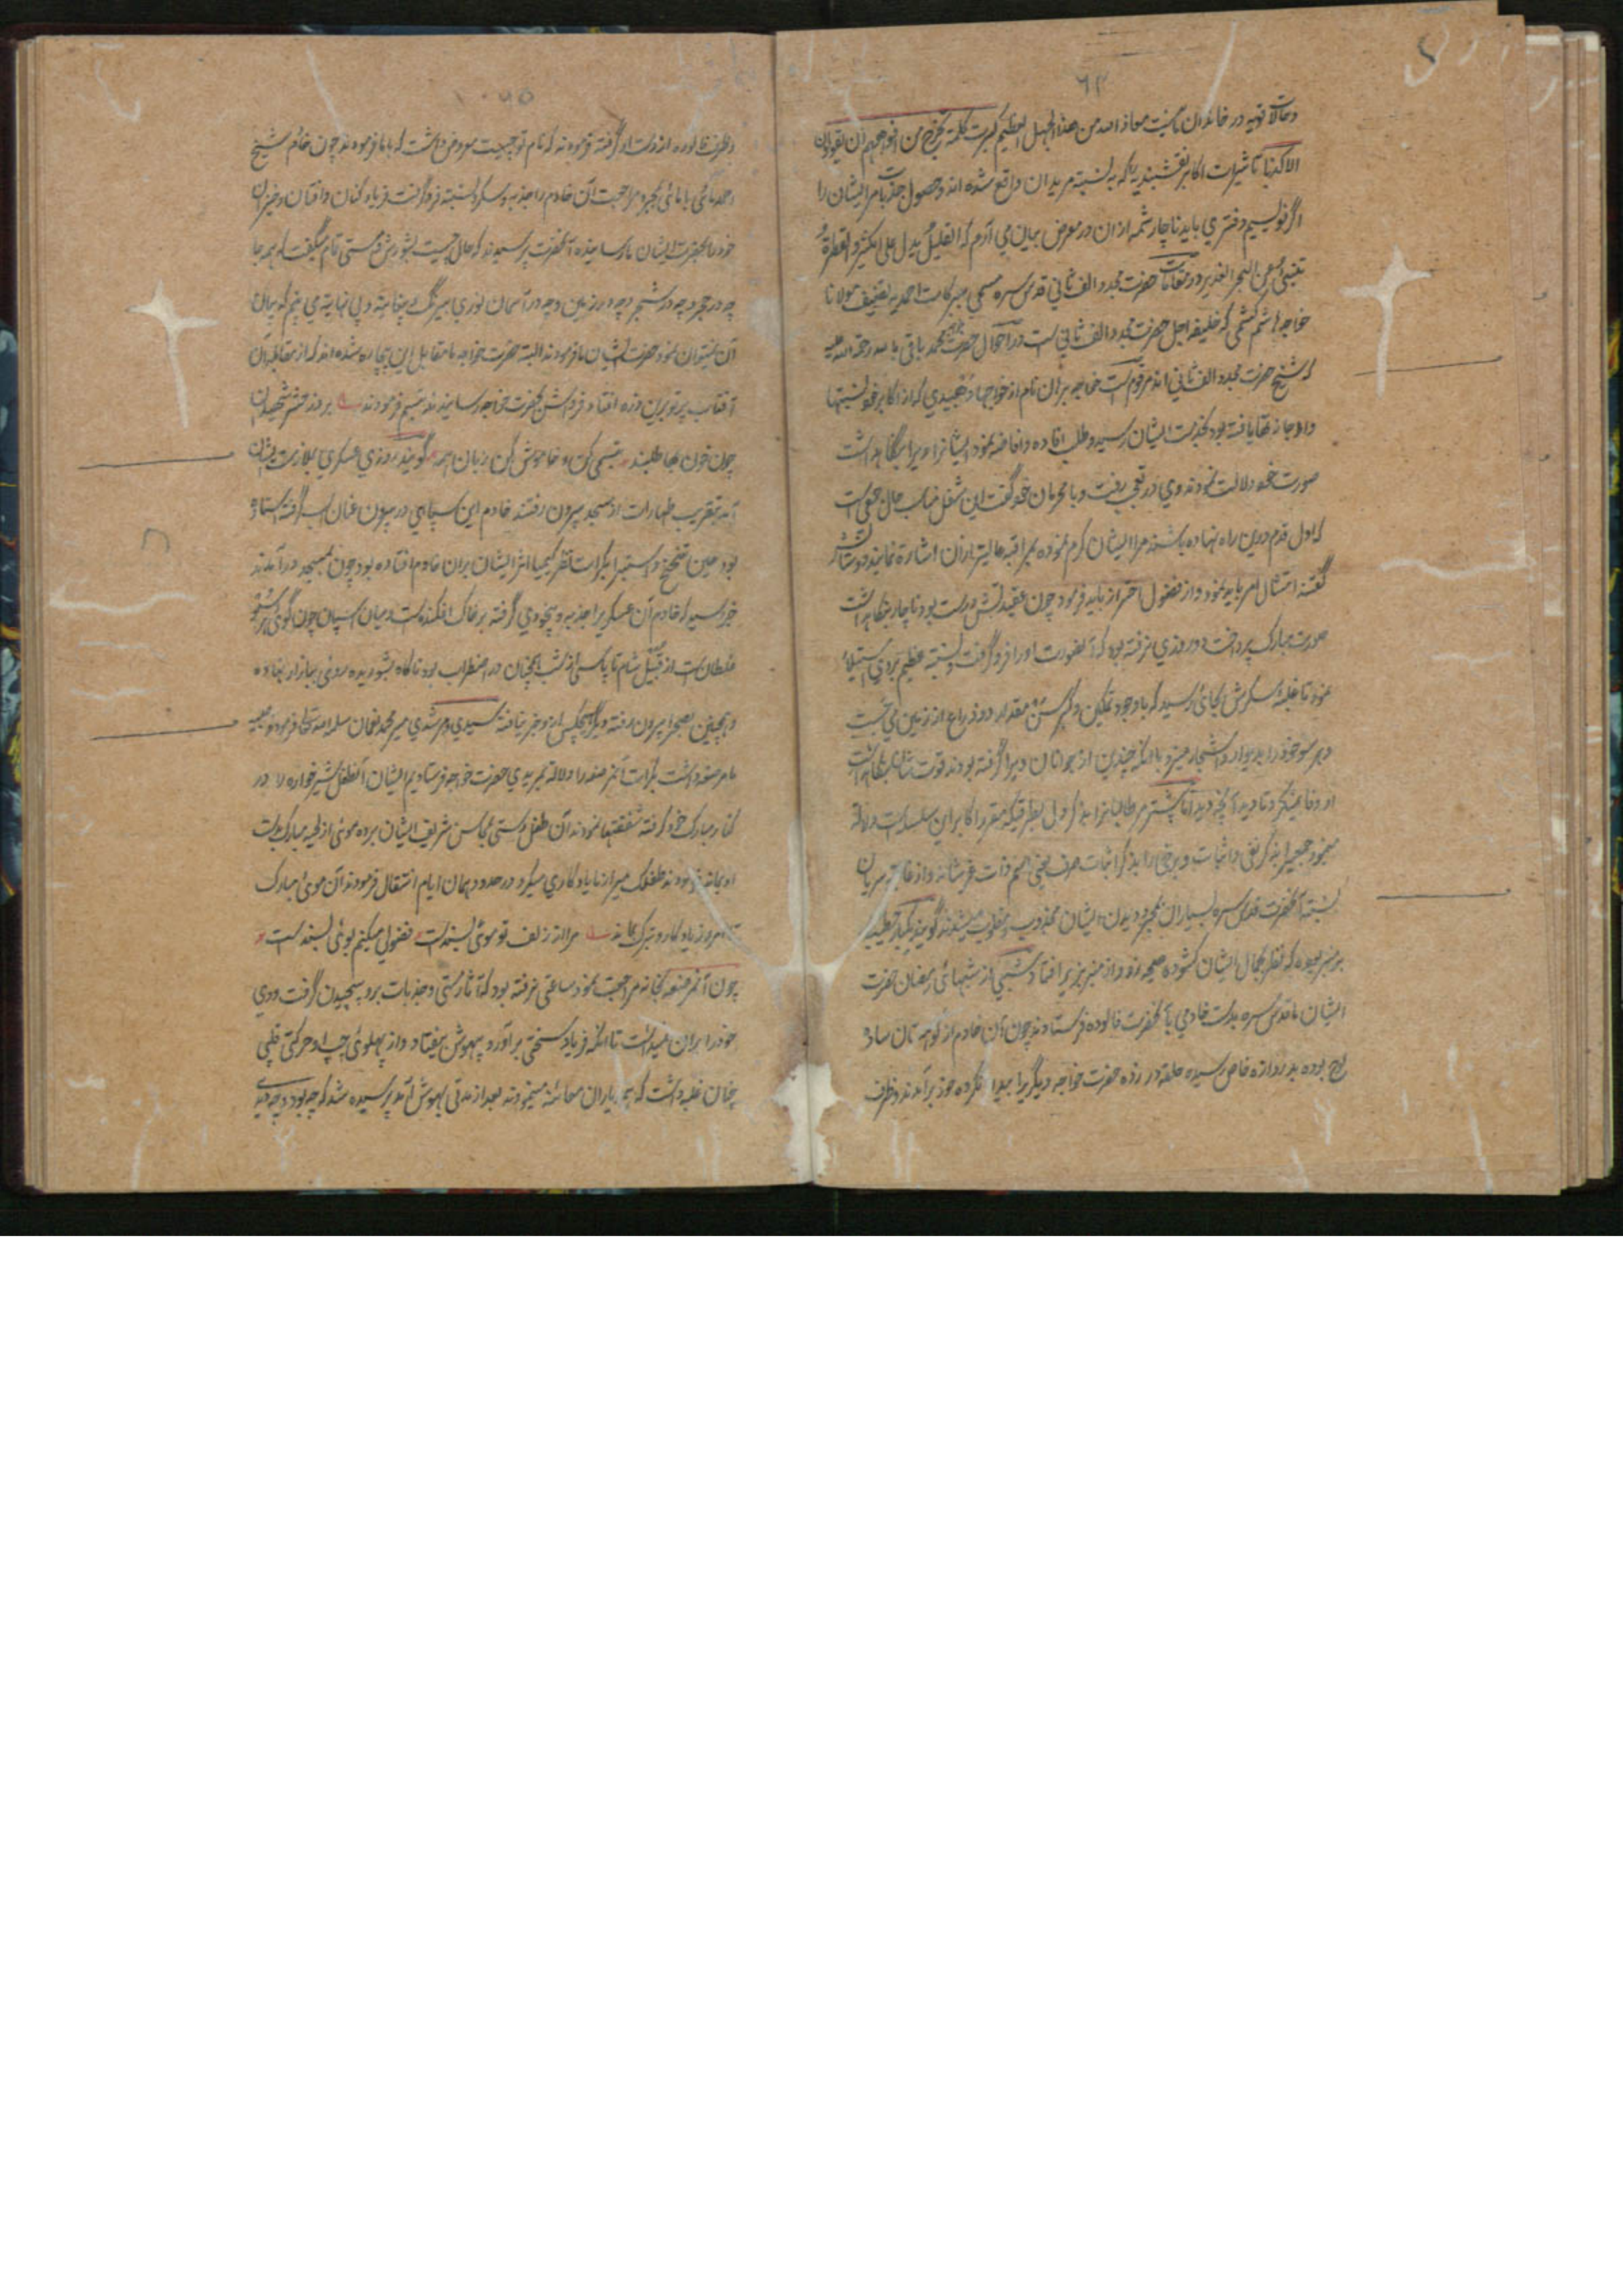 ۶۲
وحالات قویه در خاندان ما نیست معاذ الله من هذا الجهل العظیم کبرت کلمة تخرج من افواههم ان یقولون
الا کذبا تاثیرات اکابر نقشبندیه که به نسبت مریدان واقع شده اند و حصول جذبات مر ایشان را
اگر نویسیم دفتری باید ناچار شمه ازان در معرض بیان می آرم که القلیل یدل علی الکثیر و القطرة
تنبئ عن البحر الغدیر و در مقامات حضرت مجدد الف ثانی قدس سره مسمی ببرکات احمدیه تصنیف مولانا
خواجه هاشم کشمی که خلیفه اجل حضرت مجدد الف ثانی است در احوال حضرت خواجه محمد باقی بالله رحمة الله علیه
که شیخ حضرت مجدد الف ثانی اند مرقوم است خواجه برهان نام از خواجهاء دهبیدی که از اکابر خود نسبتها
و اجازتها یافته بود بخدمت ایشان رسید و طلب افاده و افاضه نمود ایشان او را بنگاهداشت
صورت خود دلالت نمودند وی در تعجب رفت و با محرمان خود گفت این شغل مناسب حال جمعی است
که اول قدم درین راه نهاده باشند مرا ایشان کرم نموده بمراقبه عالیتر ازان اشارة نمایند دوستانش
گفتند امتثال امر باید نمود و از فضول احتراز باید فرمود چون عقیدتش درست بود ناچار بنگاهداشت
صورت مبارک پرداخت دو روزی نرفته بود که آنصورت او را فرو گرفت و نسبت عظیم بروی استیلا
نمود تا غلبه سکرش بجائی رسید که باوجود تمکین و کبر سن مقدار دو ذراع از زمین می جست
و هر سو خود را بدیوار و اشجار میزد با آنکه چندین از جوانان ویرا گرفته بودند قوت شان بنگاهداشت
او وفا نمیکرد تا دید آنچه دید آنا بیشتر مر طالبانرا بذکر دل بطریقیکه مقرر اکابر این سلسله است دلالة
مینمودند جمعی را بذکر نفی و اثبات و برخی را بذکر اثبات صرف یعنی اسم ذات عز شانه و از غائبه سریان
نسبت آنحضرت قدس سره بسیاران بمجرد دیدن ایشان مجذوب و مغلوب میشدند گویند یکبار خطیب
بر منبر بوده که نظر بجمال ایشان کشوده صیحه زد و از منبر بزیر افتاد شبی از شبهائی رمضان حضرت
ایشان ما قدس سره بدست خادمی بآنحضرت فالوده فرستادند چون آن خادم از ساده
لوح بوده بدروازه خاص رسیده حلقه در زده حضرت خواجه دیگریرا بیدار نکرده خود برآمدند و ظرف
وظرف فالوده از دست او گرفته فرمودند که نام تو چیست معروض داشت که بابا فرمودند چون خادم شیخ
احمد مائی با مائی بمجرد مراجعت آن خادم را جذبه و سکر و نسبت فرو گرفت فریاد کنان و افتان و خیزان
خود را بحضرت ایشان ما رسانیده آنحضرت پرسیدند که حال چیست بشورش و مستی تمام میگفت که همه جا
چه در حجر و چه در شجر و چه در زمین و چه در آسمان نوری بیرنگ بیغایت و بی نهایتی می بینم که بیان
آن نمیتوان نمود حضرت ایشان ما فرمودند البته حضرت خواجه ما مقابل این بیچاره شده اند که از مقابله آن
آفتاب پرتو برین ذره افتاد فردائش بحضرت خواجه رسانیدند تبسم فرمودند بروز حشر شهیدان
چون خون بها طلبند تبسمی کن و خاموش کن زبان همه گویند روزی عسکری بملازمت ایشان
آمد بتقریب طهارت از مسجد بیرون رفتند خادم این سپاهی در بیرون عنان اسپ گرفته ایستاده
بود حین تنحنح و استبرا بکرات نظر کیمیا اثر ایشان بران خادم افتاده بود چون بمسجد درآمدند
خبر رسید که خادم آن عسکریرا جذبه و بیخودی گرفته بر خاک افکنده است و میان اسپان چون گوی
غلطان است از قبیل شام تا پاسی از شب همچنان در اضطراب بود ناگاه شوریده روئی ببازار نهاده
و همچنین بصحرا بیرون رفته دیگر هیچکس ازو خبر نیافته سیدی و مرشدی میر محمد نعمان سلمه الله تعالی فرمودند صبیه
ما مرضعه داشت بکرات آن مرضعه را دلالة بمریدی حضرت خواجه فرستادیم ایشان آنطفل شیرخواره را در
کنار مبارک خود گرفته شفقتها نمودند آن طفل دستی بمحاسن شریف ایشان برده موئی از لحیه مبارک بدست
او بماند فرمودند طفلک میر از ما یادگاری میگیرد در حدود همان ایام انتقال فرمودند آن موئ مبارک
تا امروز یادکار و تبرک بماند مرا از زلف تو موئی بسند است فضولی میکنم بوئی بسند است
چون آن مرضعه بخانه مراجعت نمود ساعتی نرفته بود که آثار مستی و جذبات برو پیچیدن گرفت و وی
خود را بران نمیداشت تا آنکه فریاد سختی برآورد و بیهوش بیفتاد و از پهلوئی چپ او حرکتی قلبی
چنان غلبه داشت که همه یاران معائنه مینمودند بعد از مدتی بهوش آمد پرسیده شد که چه بود و چه دیدی